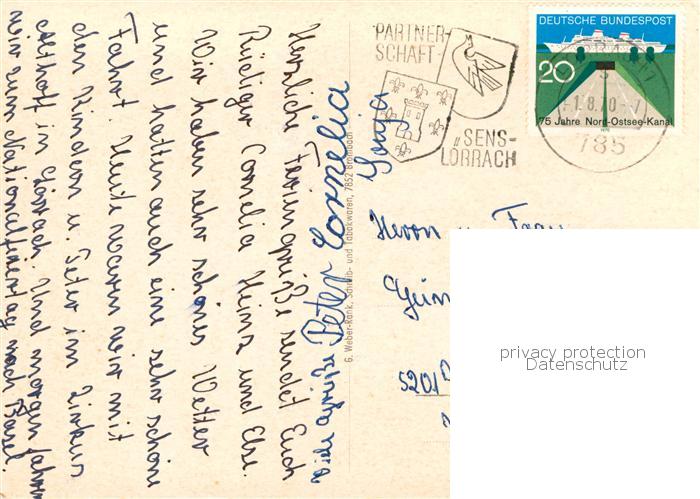 Herzliche Feriengrüße sendet Euch
Rüdiger Cornelia Heinz und Else.
Wir haben sehr schönes Wetter
und hatten auch eine sehr schöne
Fahrt. Heute waren wir mit
den Kindern u. Peter im Zirkus
Althoff in Lörrach. Und morgen fahren
wir zum Nationalfeiertag nach Basel.
Viele Grüße Peter Cornelia
Sonja
G. Weber-Rank, Schreib- und Tabakwaren, 7852
PARTNER-
SCHAFT
SENS-
LÖRRACH
DEUTSCHE BUNDESPOST
20
75 Jahre Nord-Ostsee-Kanal
1970
-1.8.70-
785
Herrn u. Frau
5201
privacy protection
Datenschutz